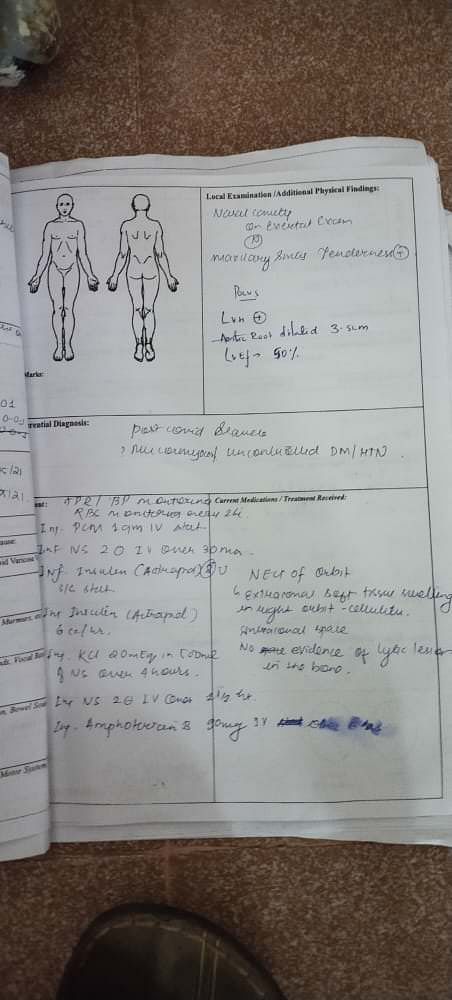 Local Examination /Additional Physical Findings:
Nasal cavity
on External Exam
(N)
maxillary Sinus Tenderness (+)
Pocus
LVH (+)
Aortic Root dilated 3.5cm
LVEf → 50%
Marks:
rential Diagnosis:
post covid
? Mucormycosis/ uncontrolled DM/HTN.
ent:
APR/ BP monitoring
Current Medications / Treatment Received:
RBS monitoring every 2h
Inj. PCM 1gm IV stat.
Inf NS IV over 30min.
Inf. Insulin (Actrapid) U
s/c stat.
Inf Insulin (Actrapid)
6cc/hr.
Inj. KCl 20mEq in 500ml
of NS over 4hours.
Inf NS IV over 1 1/2 hr.
Inj. Amphotericin B 50mg IV
NECT of Orbit
Extraconal soft tissue swelling
in right orbit - cellulitis.
space
No evidence of lytic lesion
in the bone.
01
ause:
oid Varicose
Murmurs,
nds, Vocal
n, Bowel
Motor System